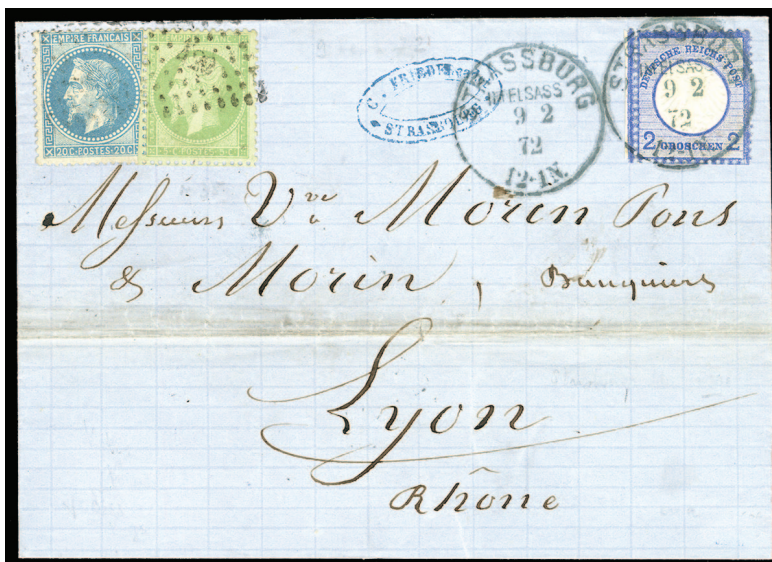 EMPIRE FRANÇAIS
20C·POSTES·20C
STRASSBURG
IM ELSASS
9 2
72
12-1N.
DEUTSCHE REICHS-POST
9 2
72
12-1N.
2 GROSCHEN 2
Messieurs Vve Morin Pons
& Morin, Banquiers
Lyon
Rhône